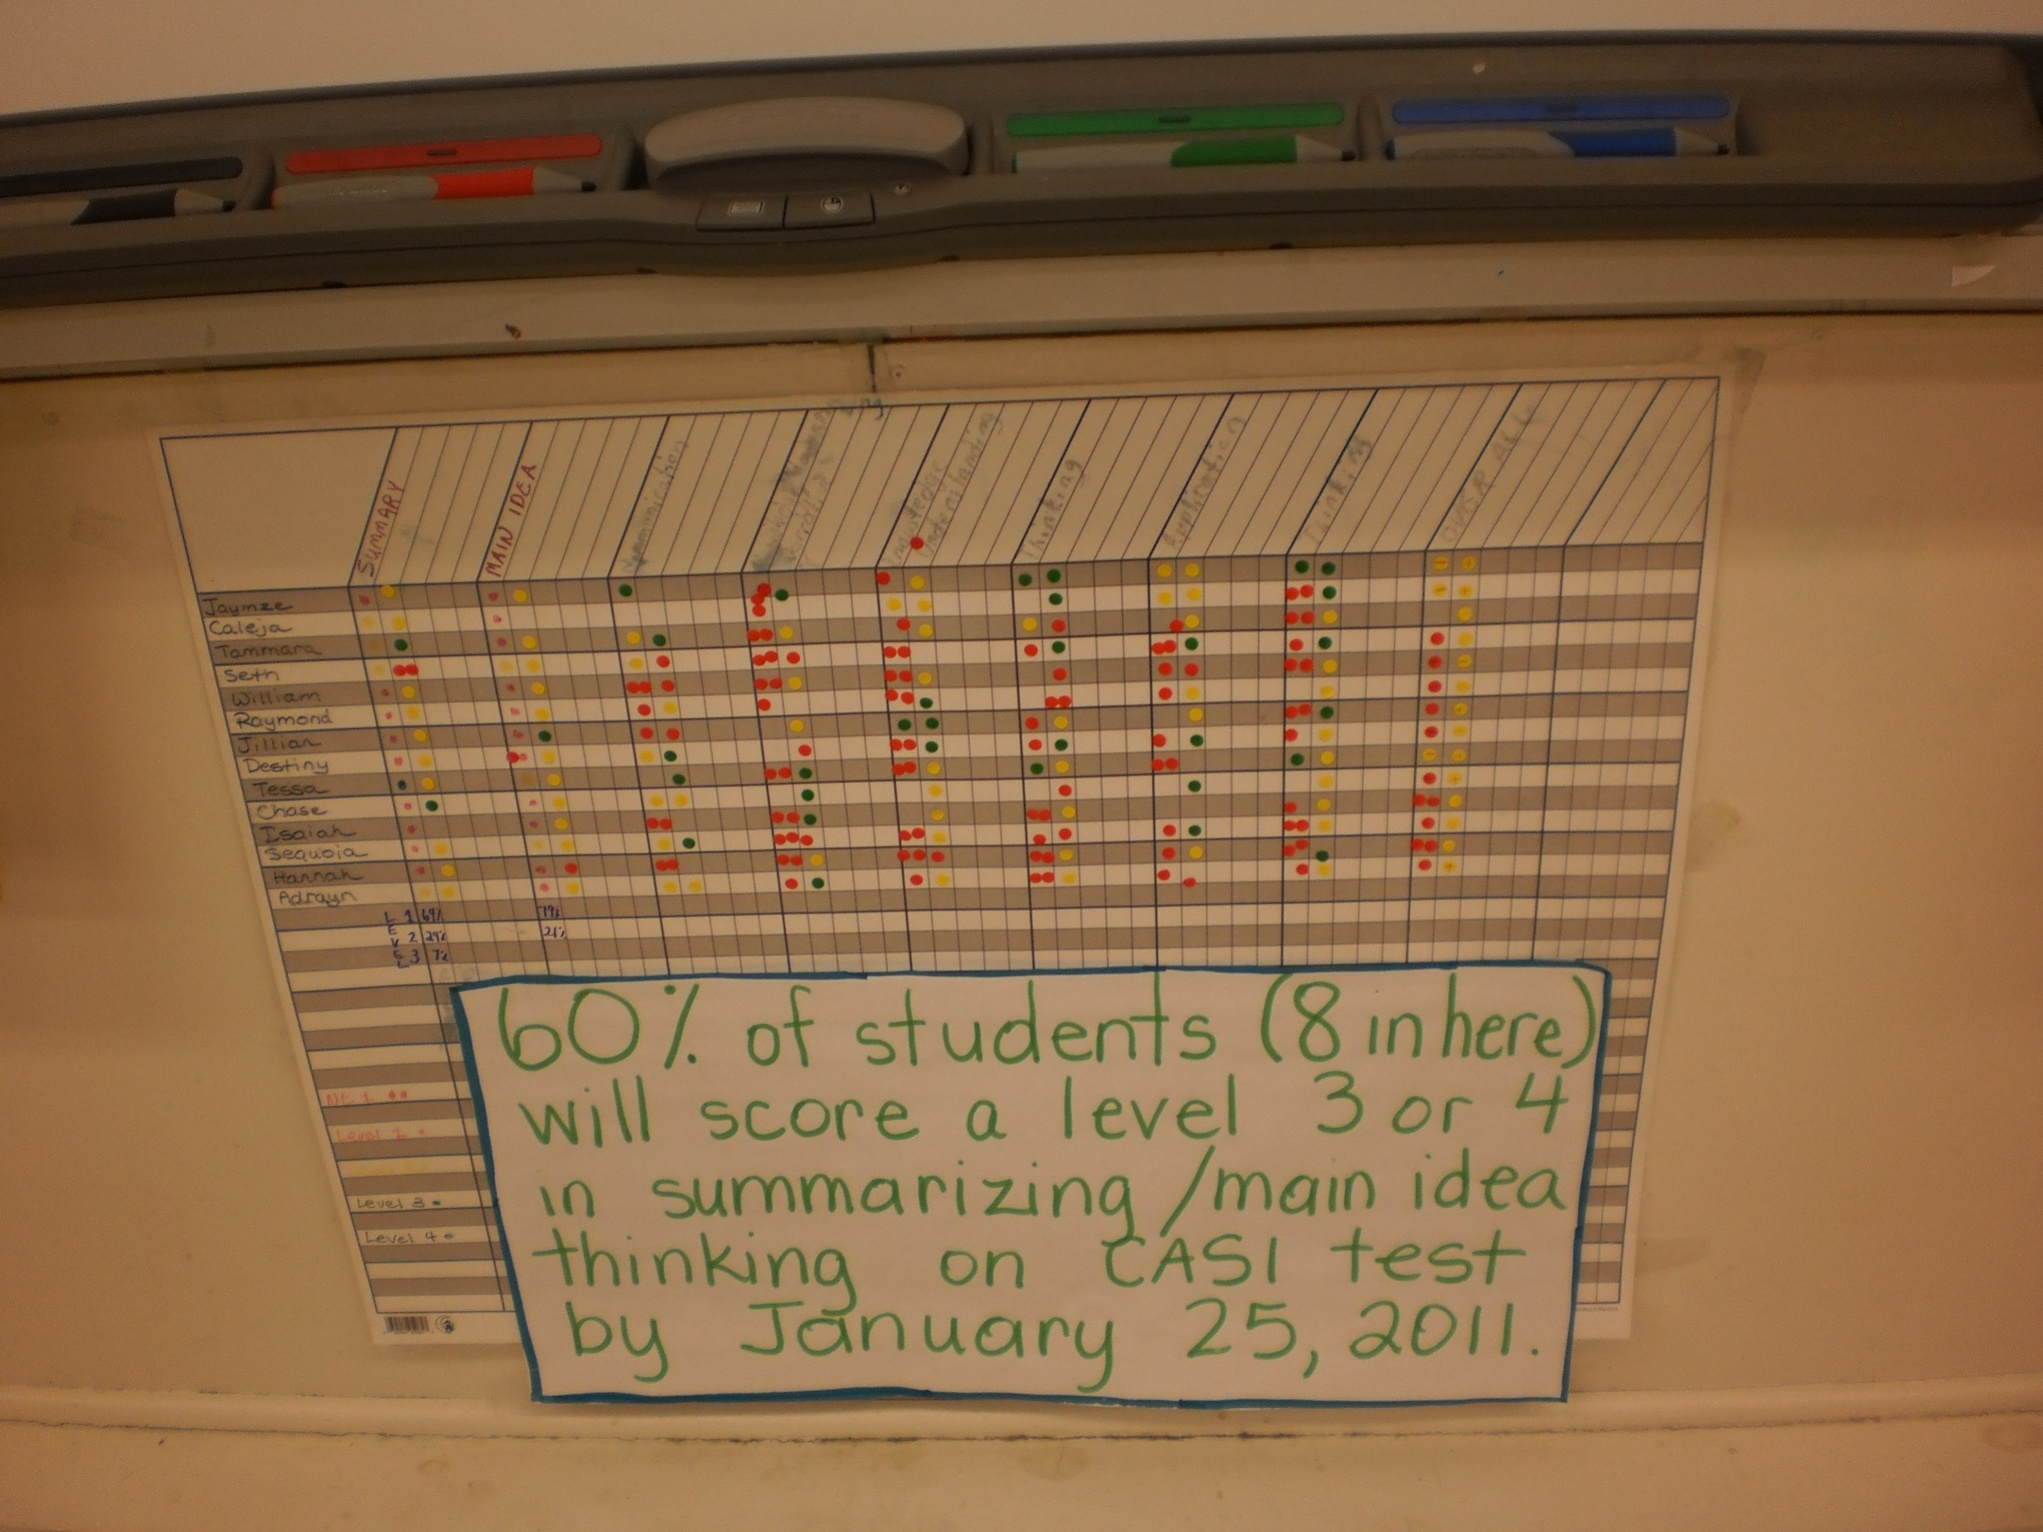 SUMMARY
MAIN IDEA
Communication
Knowledge
Understanding
Thinking
Application
Thinking
OVER ALL
Jaymze
Caleja
Tammara
Seth
William
Raymond
Jillian
Destiny
Tessa
Chase
Isaiah
Sequoia
Hannah
Adrayn
LEVEL
1 64% 79%
2 29% 21%
3 7%
Level 1
Level 3
Level 4
60% of students (8 in here)
will score a level 3 or 4
in summarizing/main idea
thinking on CASI test
by January 25, 2011.